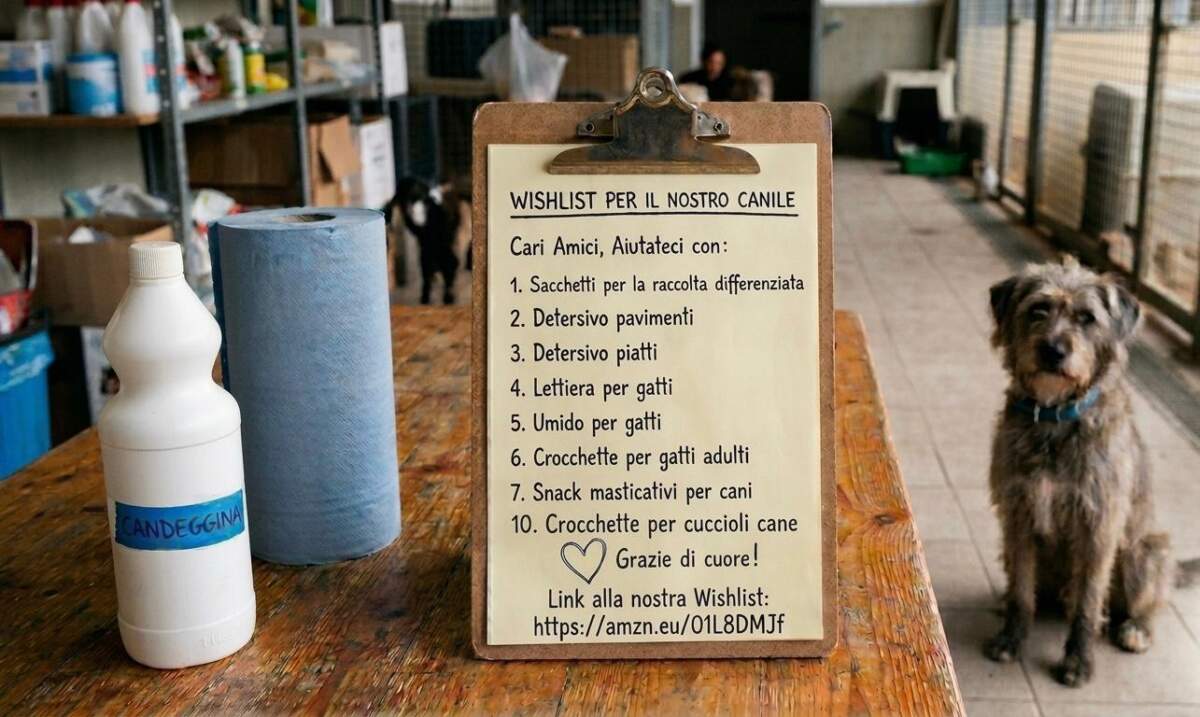 WISHLIST PER IL NOSTRO CANILE
Cari Amici, Aiutateci con:
1. Sacchetti per la raccolta differenziata
2. Detersivo pavimenti
3. Detersivo piatti
4. Lettiera per gatti
5. Umido per gatti
6. Crocchette per gatti adulti
7. Snack masticativi per cani
10. Crocchette per cuccioli cane
Grazie di cuore!
Link alla nostra Wishlist:
https://amzn.eu/01L8DMJf
CANDEGGINA